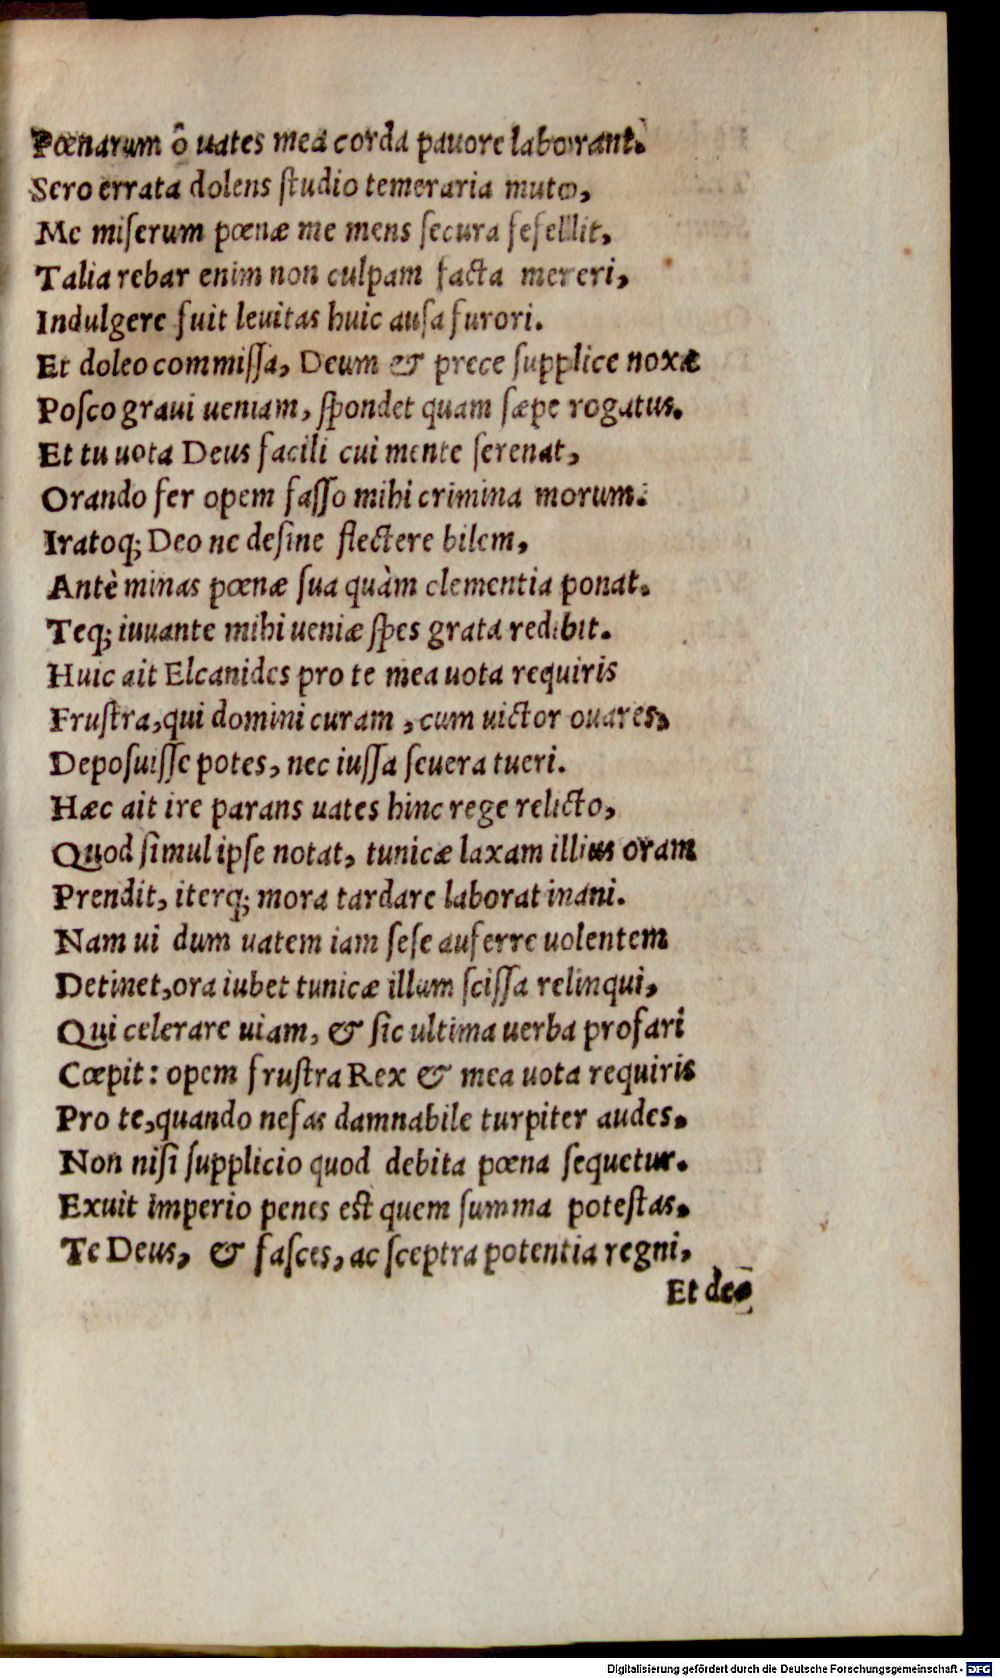 Pœnarum ô uates mea corda pauore laborant.
Sero errata dolens ſtudio temeraria muto,
Me miſerum pœnæ me mens ſecura fefellit,
Talia rebar enim non culpam facta mereri,
Indulgere fuit leuitas huic auſa furori.
Et doleo commiſſa, Deum & prece ſupplice noxæ
Poſco graui ueniam, ſpondet quam ſæpe rogatus.
Et tu uota Deus facili cui mente ſerenat,
Orando fer opem faſſo mihi crimina morum:
Iratoq; Deo ne deſine flectere bilem,
Antè minas pœnæ ſua quàm clementia ponat.
Teq; iuuante mihi ueniæ ſpes grata redibit.
Huic ait Elcanides pro te mea uota requiris
Fruſtra, qui domini curam, cum uictor ouares,
Depoſuiſſe potes, nec iuſſa ſeuera tueri.
Hæc ait ire parans uates hinc rege relicto,
Quod ſimul ipſe notat, tunicæ laxam illius oram
Prendit, iterq; mora tardare laborat inani.
Nam ui dum uatem iam ſeſe auferre uolentem
Detinet, ora iubet tunicæ illum ſciſſa relinqui,
Qui celerare uiam, & ſic ultima uerba profari
Cœpit: opem fruſtra Rex & mea uota requiris
Pro te, quando nefas damnabile turpiter audes.
Non niſi ſupplicio quod debita pœna ſequetur.
Exuit imperio penes eſt quem ſumma poteſtas.
Te Deus, & faſces, ac ſceptra potentia regni,
Et de
Digitalisierung gefördert durch die Deutsche Forschungsgemeinschaft - DFG